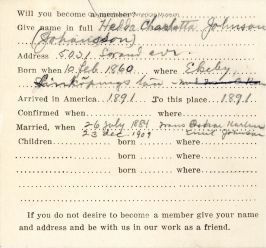 Will you become a member?
Give name in full Hedda Charlotta Johnson
(Johansson)
Address 5031 ave.
Born when 10 feb. 1860 where Ekeby
Linköpings län
Arrived in America 1891 To this place 1891.
Confirmed when where
Married, when 26 July 1884
23 dec. 1909 Emil Johnson
Children born where
born where
born where
born where
If you do not desire to become a member give your name
and address and be with us in our work as a friend.